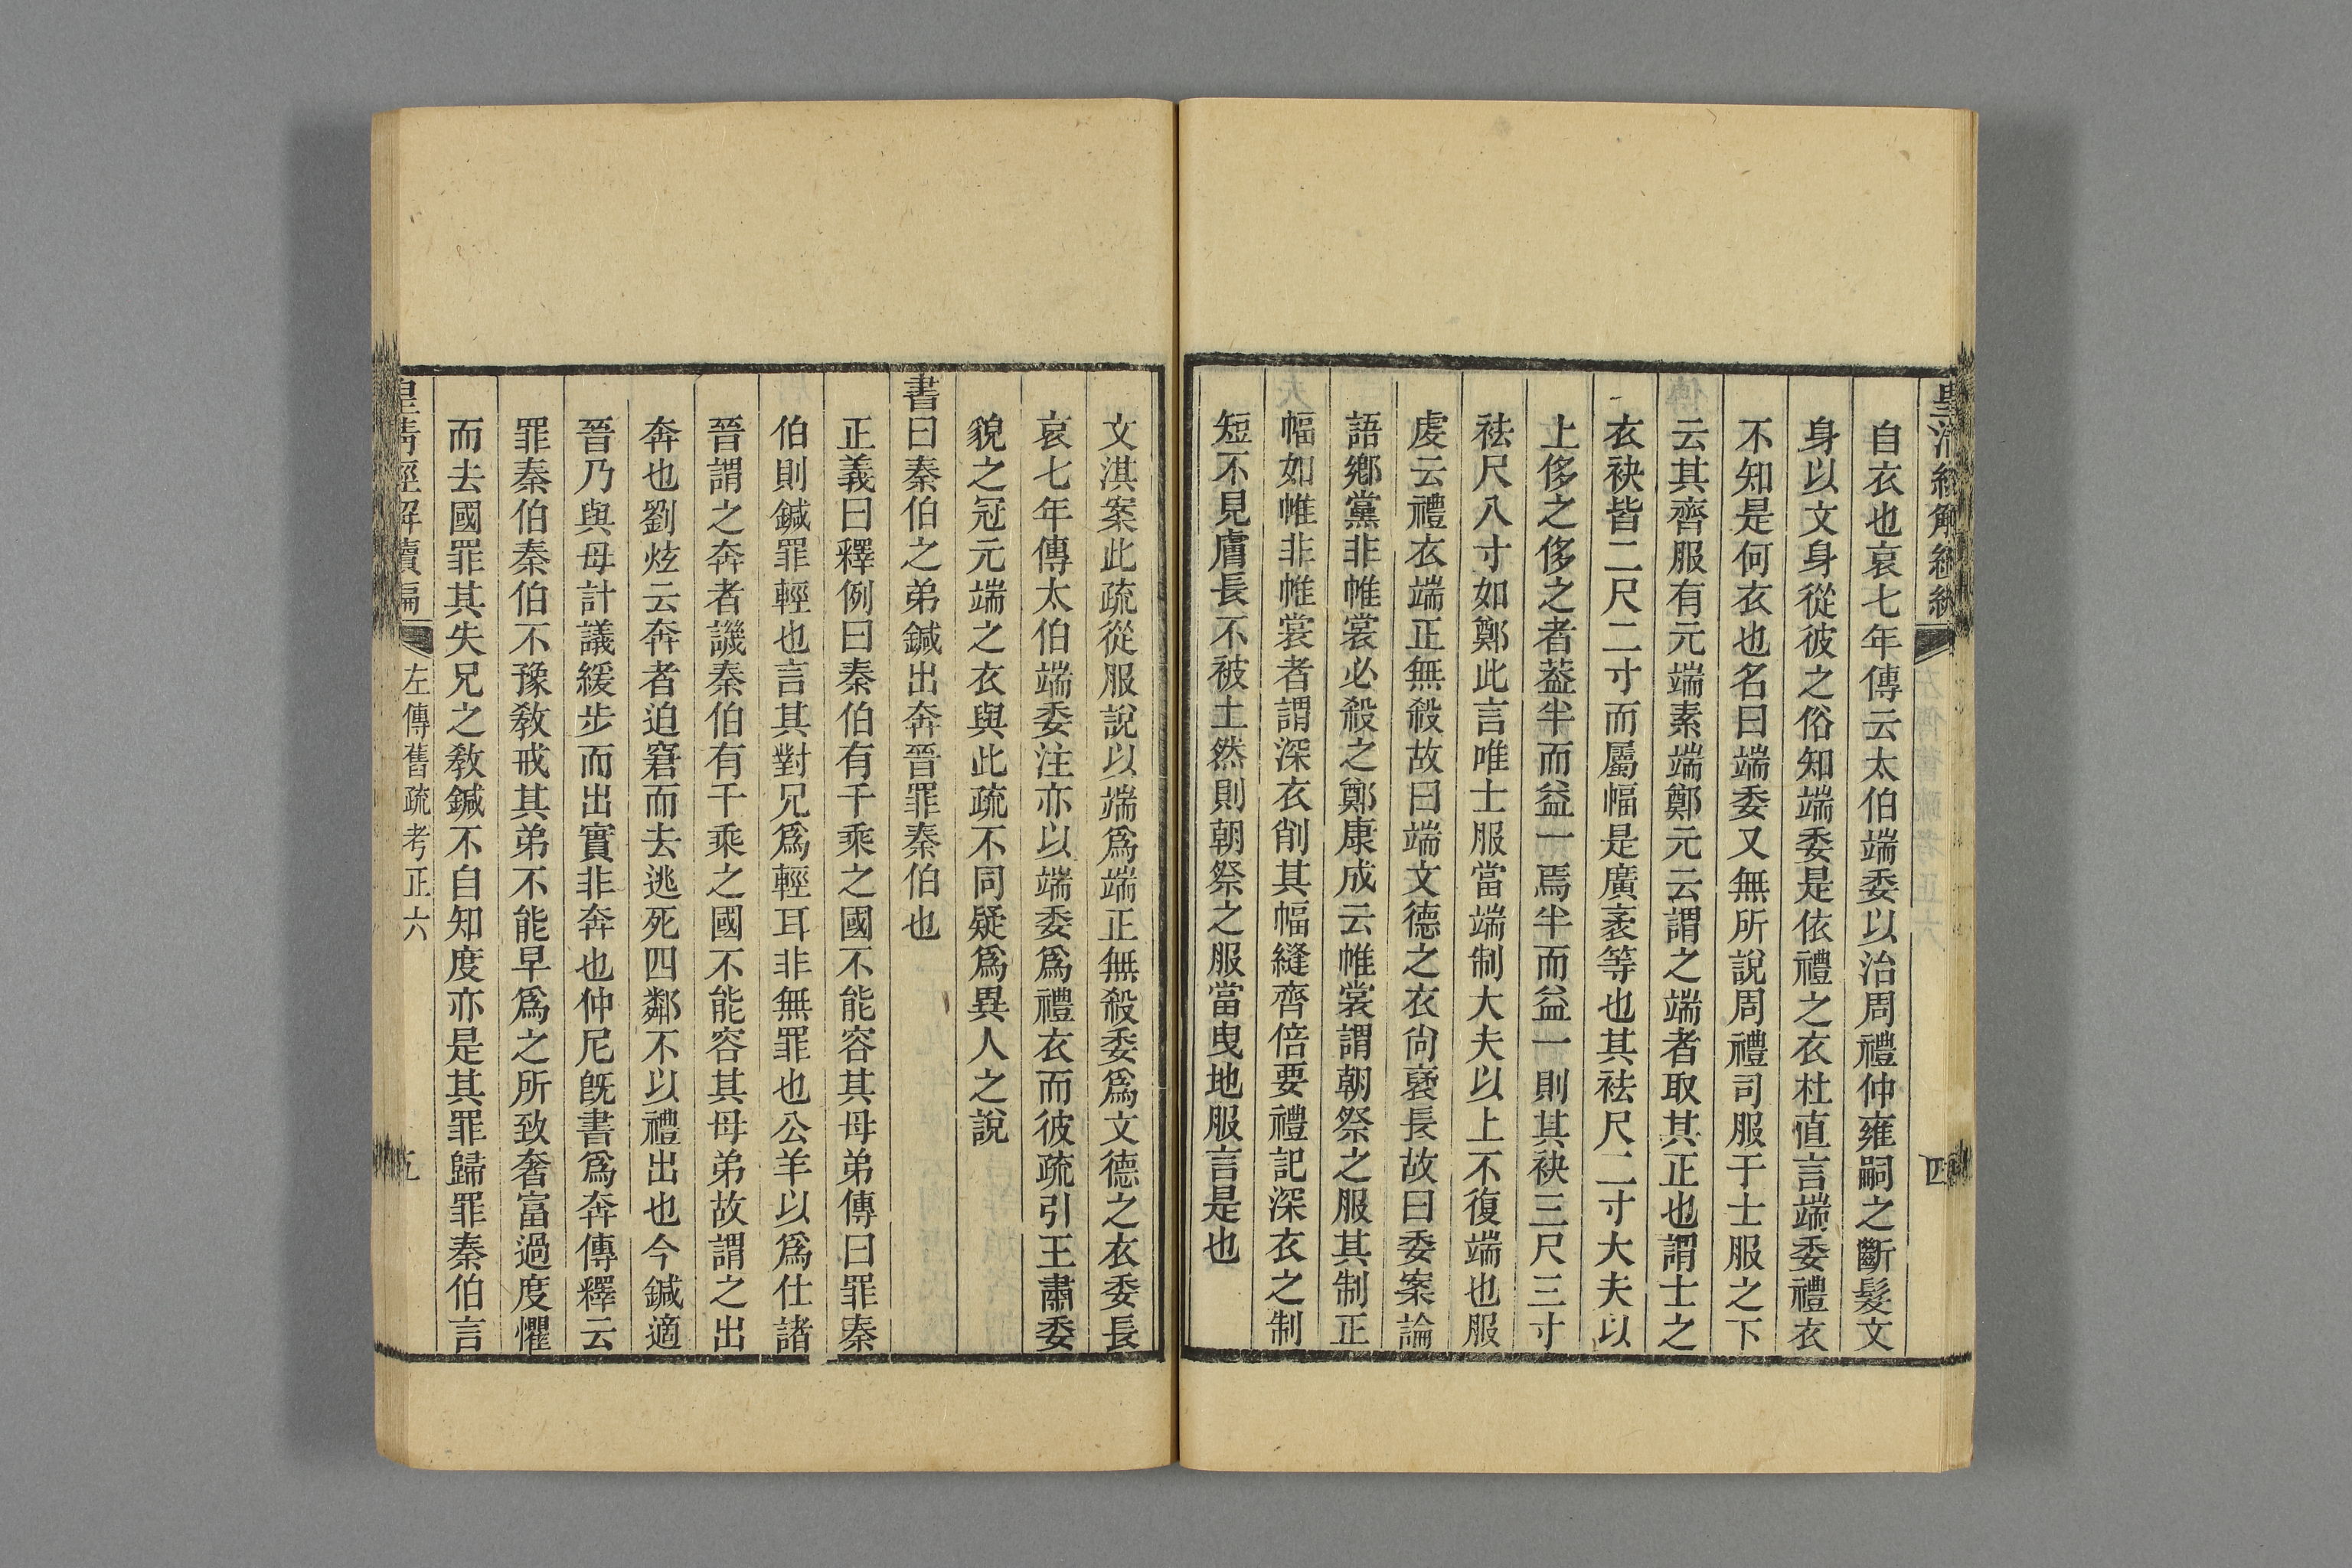 自衣也哀七年傳云太伯端委以治周禮仲雍嗣之斷髮文
身以文身從彼之俗知端委是依禮之衣杜直言端委禮衣
不知是何衣也名曰端委又無所說周禮司服于士服之下
云其齊服有元端素端鄭元云謂之端者取其正也謂士之
衣袂皆二尺二寸而屬幅是廣袤等也其袪尺二寸大夫以
上侈之侈之者葢半而益一焉半而益一則其袂三尺三寸
袪尺八寸如鄭此言唯士服當端制大夫以上不復端也服
虔云禮衣端正無殺故曰端文德之衣尚襃長故曰委案論
語鄉黨非帷裳必殺之鄭康成云帷裳謂朝祭之服其制正
幅如帷非帷裳者謂深衣削其幅縫齊倍要禮記深衣之制
短不見膚長不被土然則朝祭之服當曳地服言是也
文淇案此疏從服說以端爲端正無殺委爲文德之衣委長
哀七年傳太伯端委注亦以端委爲禮衣而彼疏引王肅委
貌之冠元端之衣與此疏不同疑爲異人之說
書曰秦伯之弟鍼出奔晉罪秦伯也
正義曰釋例曰秦伯有千乘之國不能容其母弟傳曰罪秦
伯則鍼罪輕也言其對兄爲輕耳非無罪也公羊以爲仕諸
晉謂之奔者譏秦伯有千乘之國不能容其母弟故謂之出
奔也劉炫云奔者迫窘而去逃死四鄰不以禮出也今鍼適
晉乃與母計議緩步而出實非奔也仲尼旣書爲奔傳釋云
罪秦伯秦伯不豫敎戒其弟不能早爲之所致奢富過度懼
而去國罪其失兄之敎鍼不自知度亦是其罪歸罪秦伯言
皇清經解續編 左傳舊疏考正六